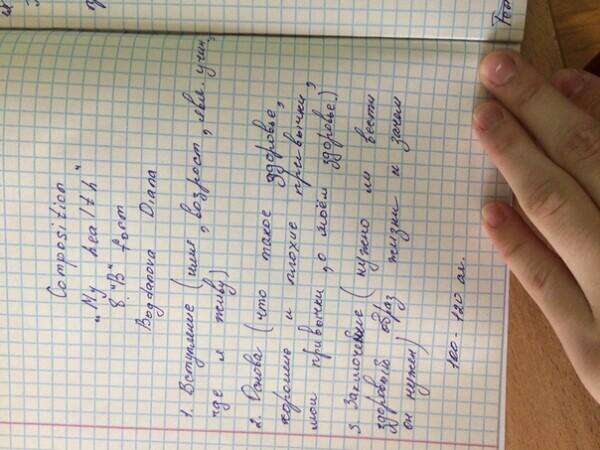 Composition
„My health"
8 „B" form
Bogdanova Diana
1. Вступление (имя, возраст, явл. учин,
где я живу)
2. Основа (что такое здоровье,
хорошие и плохие привычки,
мои привычки, о моём здоровье.)
3. Заключение (нужно ли вести
здоровый образ жизни и зачем
он нужен)
100 - 120 сл.